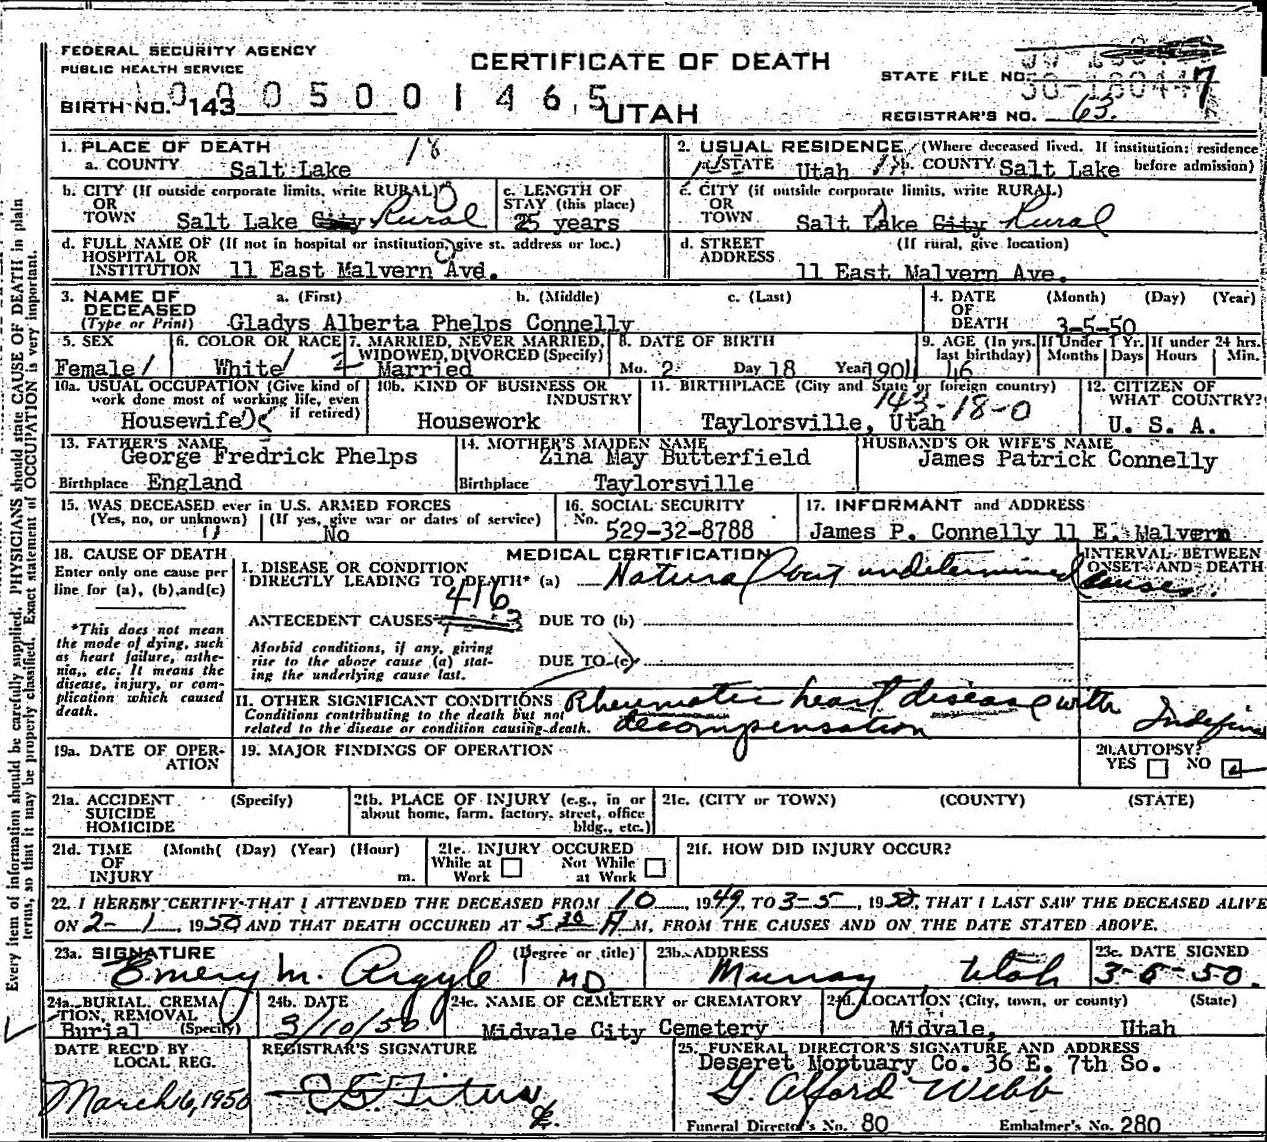 FEDERAL SECURITY AGENCY
PUBLIC HEALTH SERVICE
CERTIFICATE OF DEATH
STATE FILE NO.
BIRTH NO. 143
UTAH
REGISTRAR'S NO. 63.
1. PLACE OF DEATH
a. COUNTY Salt Lake 18
2. USUAL RESIDENCE (Where deceased lived. If institution: residence before admission)
a. STATE Utah b. COUNTY Salt Lake
b. CITY (If outside corporate limits, write RURAL) OR TOWN Salt Lake City Rural
c. LENGTH OF STAY (this place) 25 years
c. CITY (if outside corporate limits, write RURAL) OR TOWN Salt Lake City Rural
d. FULL NAME OF (If not in hospital or institution, give st. address or loc.) HOSPITAL OR INSTITUTION 11 East Malvern Ave.
d. STREET ADDRESS (If rural, give location) 11 East Malvern Ave.
3. NAME OF DECEASED (Type or Print) a. (First) b. (Middle) c. (Last)
Gladys Alberta Phelps Connelly
4. DATE OF DEATH (Month) (Day) (Year) 3-5-50
5. SEX Female
6. COLOR OR RACE White
7. MARRIED, NEVER MARRIED, WIDOWED, DIVORCED (Specify) Married
8. DATE OF BIRTH Mo. 2 Day 18 Year 1904
9. AGE (In yrs. last birthday) 46 If Under 1 Yr. Months Days If under 24 hrs. Hours Min.
10a. USUAL OCCUPATION (Give kind of work done most of working life, even if retired) Housewife
10b. KIND OF BUSINESS OR INDUSTRY Housework
11. BIRTHPLACE (City and State or foreign country) 143-18-0
Taylorsville, Utah
12. CITIZEN OF WHAT COUNTRY? U. S. A.
13. FATHER'S NAME George Fredrick Phelps
Birthplace England
14. MOTHER'S MAIDEN NAME Zina May Butterfield
Birthplace Taylorsville
HUSBAND'S OR WIFE'S NAME James Patrick Connelly
15. WAS DECEASED ever in U.S. ARMED FORCES
(Yes, no, or unknown) (If yes, give war or dates of service) No
16. SOCIAL SECURITY No. 529-32-8788
17. INFORMANT and ADDRESS
James P. Connelly 11 E. Malvern
18. CAUSE OF DEATH
Enter only one cause per line for (a), (b), and (c)
*This does not mean the mode of dying, such as heart failure, asthenia, etc. It means the disease, injury, or complication which caused death.
MEDICAL CERTIFICATION
INTERVAL BETWEEN ONSET AND DEATH
I. DISEASE OR CONDITION DIRECTLY LEADING TO DEATH* (a) Natural but undetermined cause.
416
ANTECEDENT CAUSES DUE TO (b)
Morbid conditions, if any, giving rise to the above cause (a) stating the underlying cause last.
DUE TO (c)
II. OTHER SIGNIFICANT CONDITIONS
Conditions contributing to the death but not related to the disease or condition causing death.
Rheumatic heart disease with decompensation
19a. DATE OF OPERATION
19. MAJOR FINDINGS OF OPERATION
20. AUTOPSY? YES NO
21a. ACCIDENT SUICIDE HOMICIDE (Specify)
21b. PLACE OF INJURY (e.g., in or about home, farm, factory, street, office bldg., etc.)
21c. (CITY or TOWN) (COUNTY) (STATE)
21d. TIME OF INJURY (Month) (Day) (Year) (Hour) m.
21e. INJURY OCCURED While at Work Not While at Work
21f. HOW DID INJURY OCCUR?
22. I HEREBY CERTIFY THAT I ATTENDED THE DECEASED FROM 10, 1949, TO 3-5, 1950, THAT I LAST SAW THE DECEASED ALIVE
ON 2-1, 1950 AND THAT DEATH OCCURED AT 5 30 A M, FROM THE CAUSES AND ON THE DATE STATED ABOVE.
23a. SIGNATURE (Degree or title) Emery M. Argyle MD
23b. ADDRESS Murray Utah
23c. DATE SIGNED 3-6-50.
24a. BURIAL, CREMATION, REMOVAL (Specify) Burial
24b. DATE 3/10/50
24c. NAME OF CEMETERY or CREMATORY Midvale City Cemetery
24d. LOCATION (City, town, or county) (State) Midvale, Utah
DATE REC'D BY LOCAL REG. March 6, 1950
REGISTRAR'S SIGNATURE
25. FUNERAL DIRECTOR'S SIGNATURE AND ADDRESS
Deseret Mortuary Co. 36 E. 7th So.
G. Alford Webb
Funeral Director's No. 80 Embalmer's No. 280
Every item of information should be carefully supplied. PHYSICIANS should state CAUSE OF DEATH in plain
terms, so that it may be properly classified. Exact statement of OCCUPATION is very important.